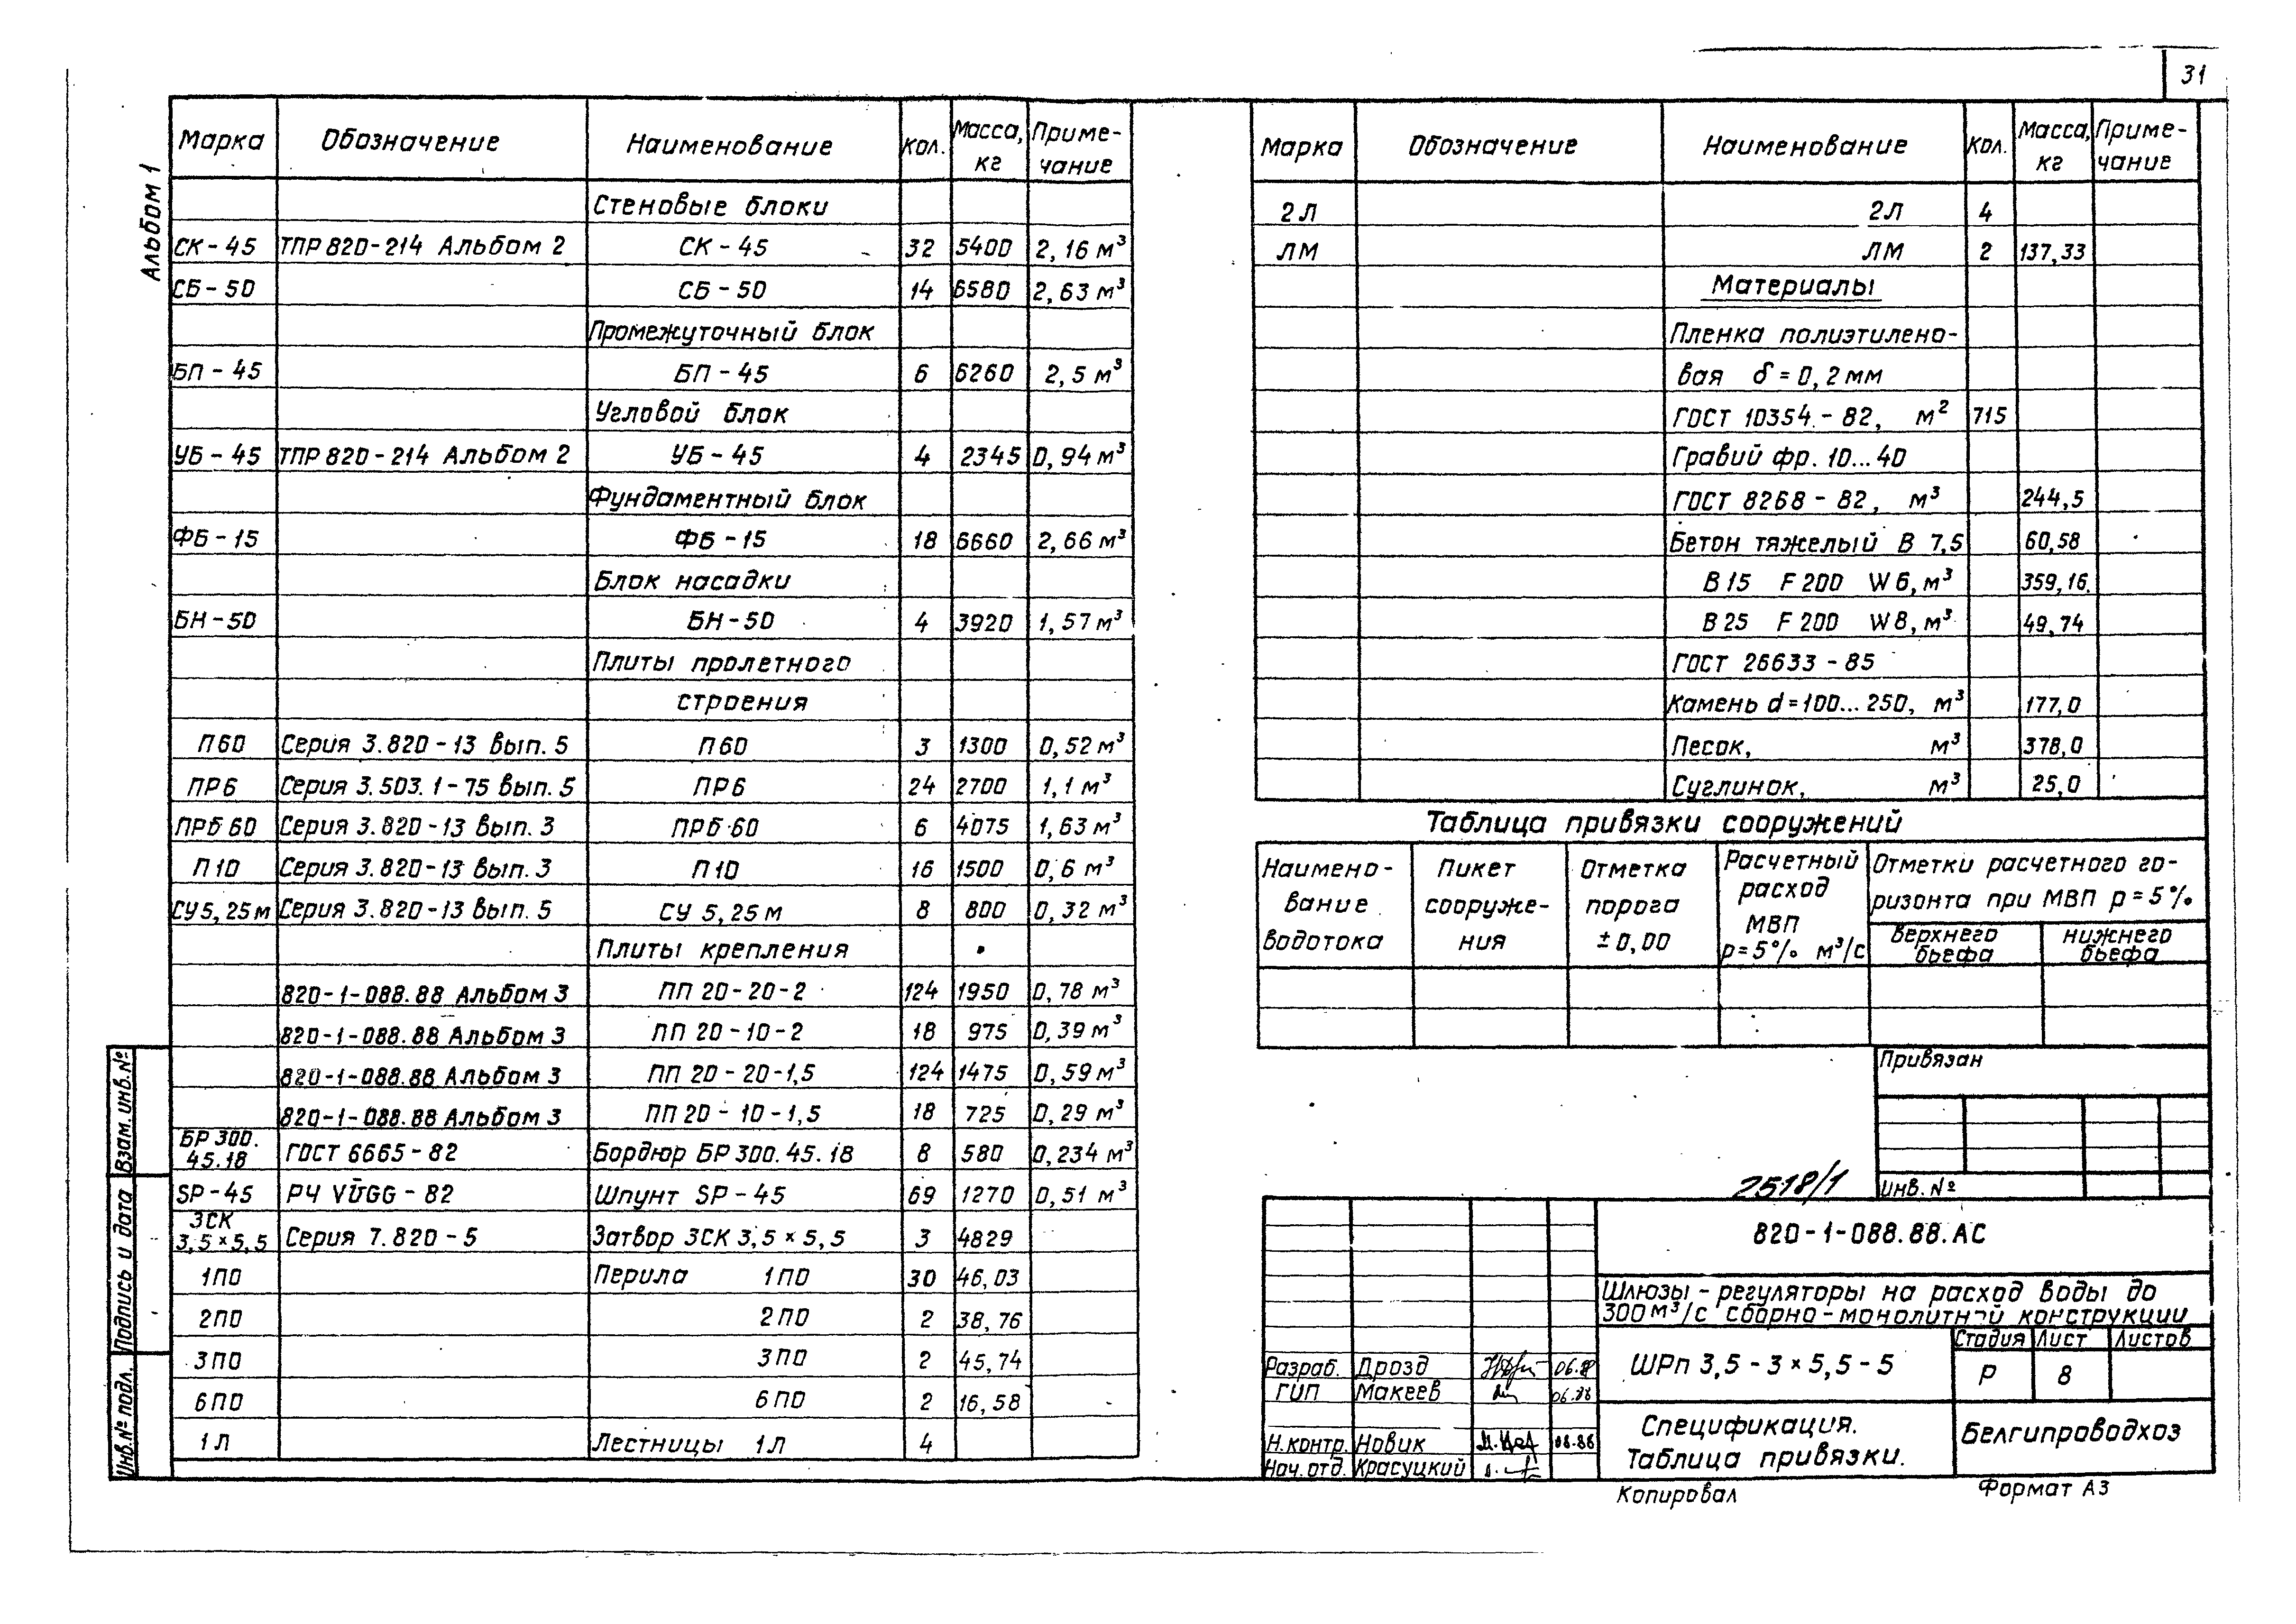 31
Альбом 1
Марка Обозначение Наименование Кол. Масса, кг Примечание
Стеновые блоки
СК-45 ТПР 820-214 Альбом 2 СК-45 32 5400 2,16 м³
СБ-50 СБ-50 14 6580 2,63 м³
Промежуточный блок
БП-45 БП-45 6 6260 2,5 м³
Угловой блок
УБ-45 ТПР 820-214 Альбом 2 УБ-45 4 2345 0,94 м³
Фундаментный блок
ФБ-15 ФБ-15 18 6660 2,66 м³
Блок насадки
БН-50 БН-50 4 3920 1,57 м³
Плиты пролетного
строения
П60 Серия 3.820-13 вып. 5 П60 3 1300 0,52 м³
ПР6 Серия 3.503.1-75 вып. 5 ПР6 24 2700 1,1 м³
ПРб 60 Серия 3.820-13 вып. 3 ПРб 60 6 4075 1,63 м³
П10 Серия 3.820-13 вып. 3 П10 16 1500 0,6 м³
СУ 5,25м Серия 3.820-13 вып. 5 СУ 5,25м 8 800 0,32 м³
Плиты крепления
820-1-088.88 Альбом 3 ПП 20-20-2 124 1950 0,78 м³
820-1-088.88 Альбом 3 ПП 20-10-2 18 975 0,39 м³
820-1-088.88 Альбом 3 ПП 20-20-1,5 124 1475 0,59 м³
820-1-088.88 Альбом 3 ПП 20-10-1,5 18 725 0,29 м³
БР 300.45.18 ГОСТ 6665-82 Бордюр БР 300.45.18 8 580 0,234 м³
SP-45 РЧ VÜGG-82 Шпунт SP-45 69 1270 0,51 м³
ЗСК 3,5×5,5 Серия 7.820-5 Затвор ЗСК 3,5×5,5 3 4829
1ПО Перила 1ПО 30 46,03
2ПО 2ПО 2 38,76
3ПО 3ПО 2 45,74
6ПО 6ПО 2 16,58
1Л Лестницы 1Л 4
Взам. инв. №
Подпись и дата
Инв. № подл.
Марка Обозначение Наименование Кол. Масса, кг Примечание
2Л 2Л 4
ЛМ ЛМ 2 137,33
Материалы
Пленка полиэтилено-
вая δ=0,2мм
ГОСТ 10354-82, м² 715
Гравий фр. 10...40
ГОСТ 8268-82, м³ 244,5
Бетон тяжелый В 7,5 60,58
В15 F200 W6, м³ 359,16
В25 F200 W8, м³ 49,74
ГОСТ 26633-85
Камень d=100...250, м³ 177,0
Песок, м³ 378,0
Суглинок, м³ 25,0
Таблица привязки сооружений
Наимено-
вание
водотока
Пикет
сооруже-
ния
Отметка
порога
±0,00
Расчетный
расход
МВП
р=5% м³/с
Отметки расчетного го-
ризонта при МВП р=5%
верхнего
бьефа
нижнего
бьефа
Привязан
Инв. №
2518/1
820-1-088.88.АС
Шлюзы-регуляторы на расход воды до
300м³/с сборно-монолитной конструкции
ШРп 3,5-3×5,5-5
Стадия Лист Листов
Р 8
Разраб. Дрозд 06.88
ГИП Макеев 06.88
Н.контр. Новик 06.88
Нач.отд. Красуцкий
Спецификация.
Таблица привязки.
Белгипроводхоз
Копировал
Формат А3